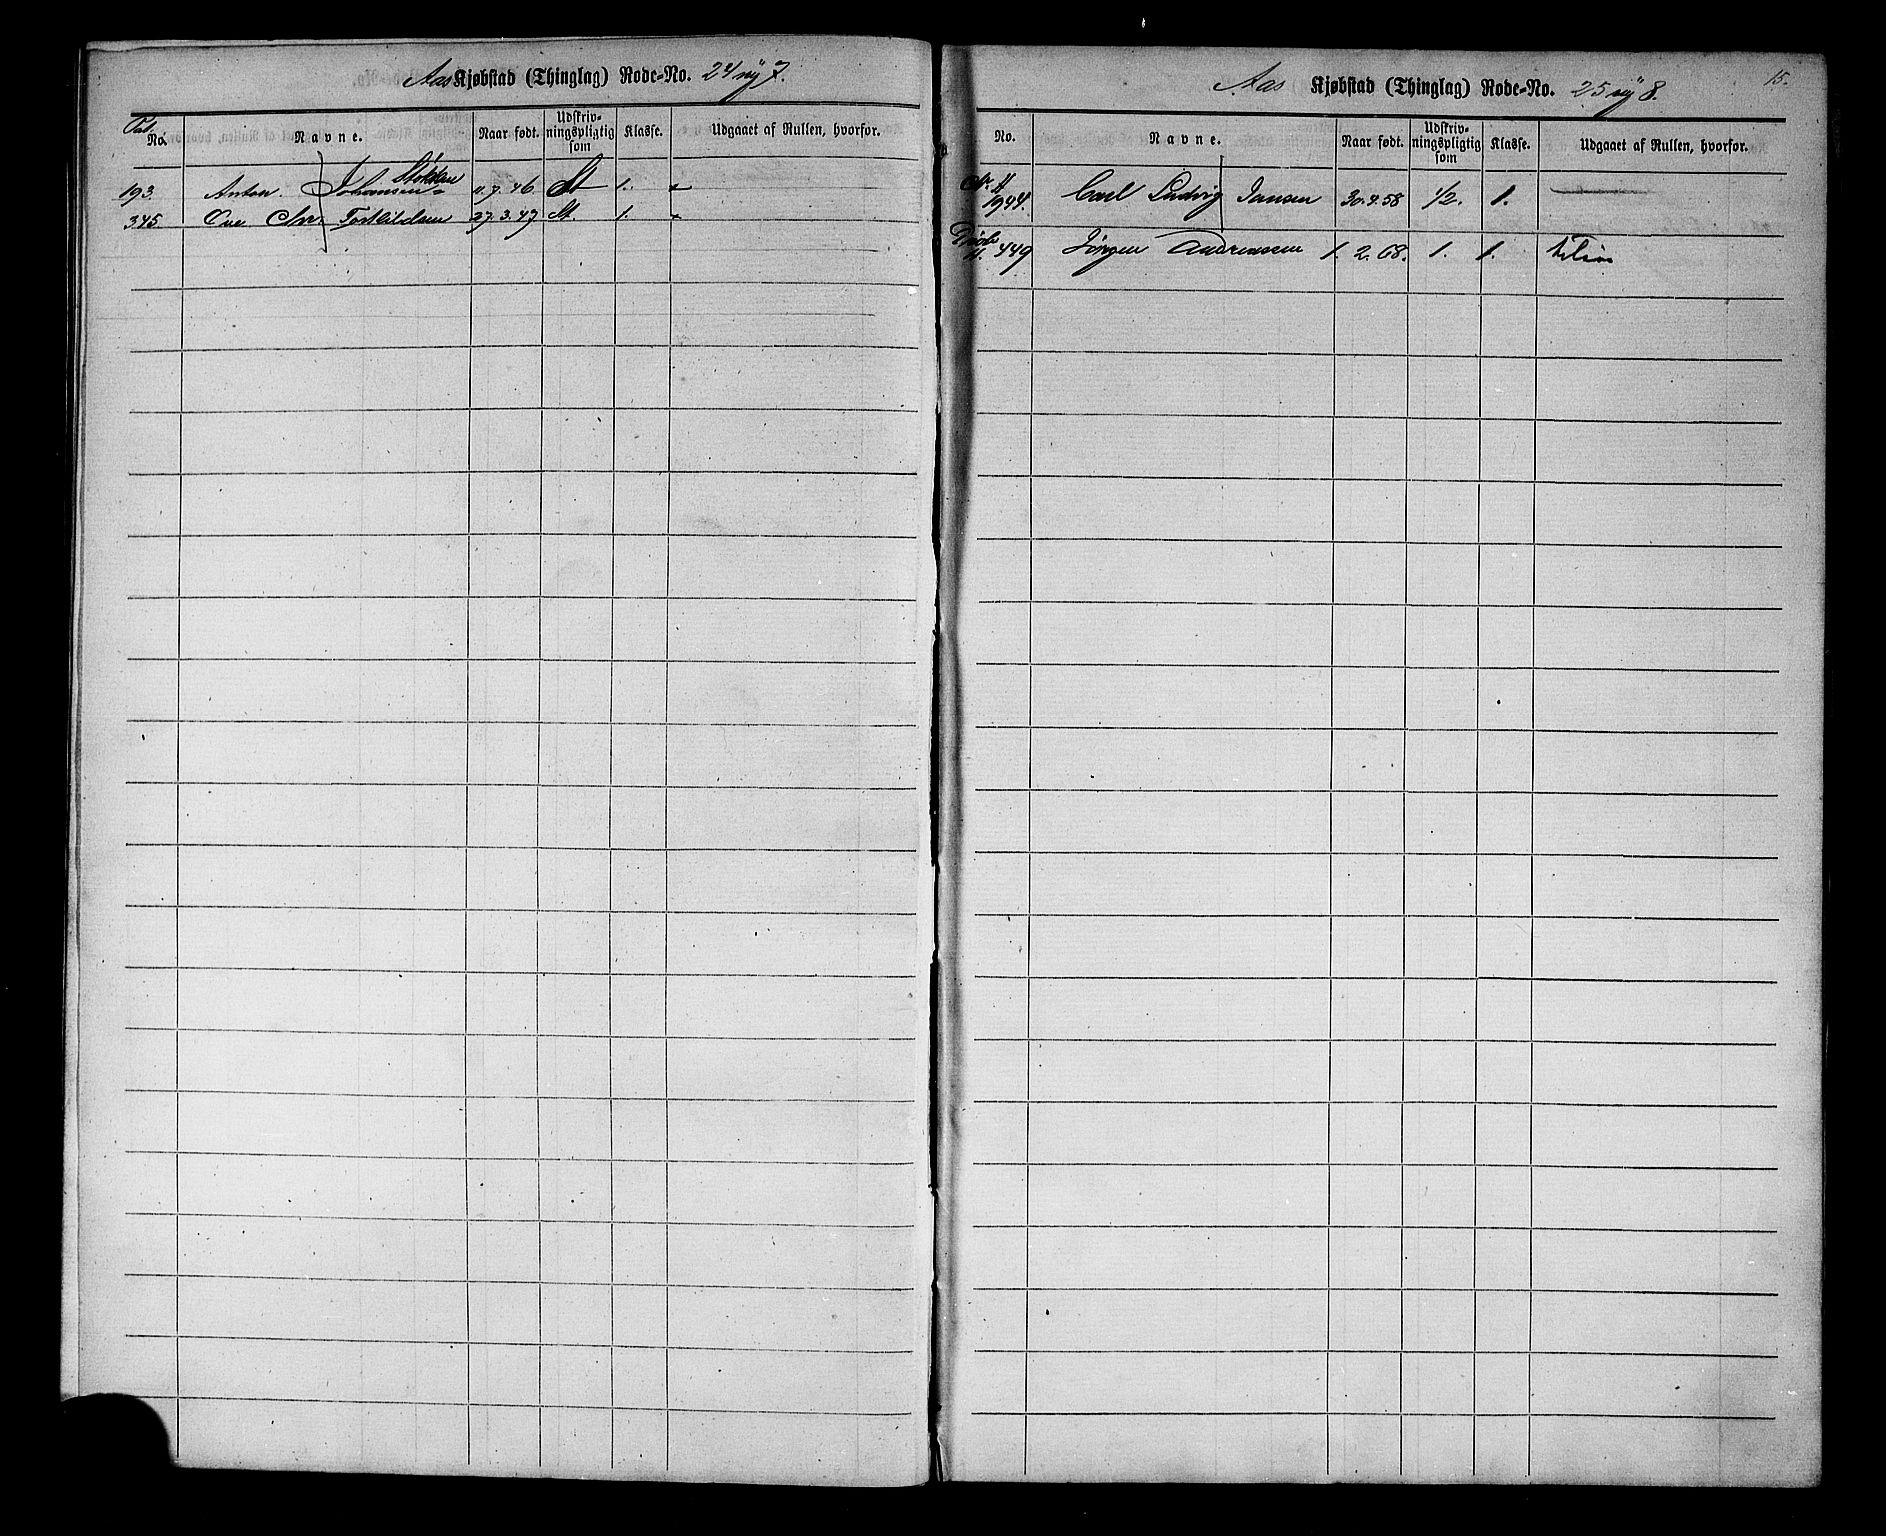 Aas Kjøbstad (Thinglag) Rode-No. 24 ny 7.
No. Navne. Naar født. Udskriv-ningspligtig som Klasse. Udgaaet af Rullen, hvorfor.
193. Anton Johansen 11.7.46. St 1.
345. Ove Chr. Torkildsen 27.3.47. St. 1.
15.
Aas Kjøbstad (Thinglag) Rode-No. 25 ny 8.
No. Navne. Naar født. Udskriv-ningspligtig som Klasse. Udgaaet af Rullen, hvorfor.
1944. Carl Ludvig Jansen 30.4.58 1/2. 1.
449 Jörgen Andreassen 1.2.68. 1. 1.